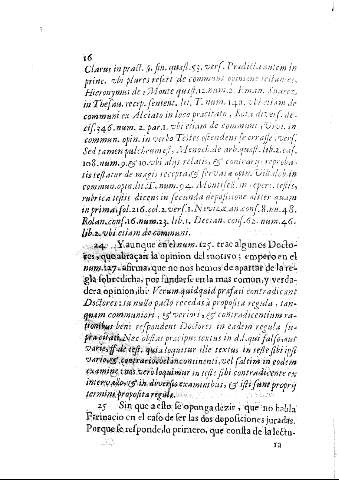 16
Clarus in pract. §. fin. quæst. 53. vers. Prædicta autem in
princ. vbi plures refert de communi opinione testantes,
Hieronymus de Monte quæst. 12. num. 2. Eman. Suarez,
in Thesau. recep. sentent. lit. T. num. 140. vbi etiam de
communi ex Alciato in loco præcitato, Rota divers. de-
cis. 346. num. 2. par. 1. vbi etiam de communi Viui. in
commun. opin. in verbo Testes ostendens se errasse, vers.
Sed tamen pulchrum est, Menoch. de arb. quæst. lib. 2. cas.
108. num. 9. & 10. vbi alijs relatis, & contrarijs reproba-
tis testatur de magis recepta & servata opin. Vid. deb. in
commun. opin. lit. T. num. 94. Monticel. in reper. testis,
rubrica testis dicens in secunda depositione aliter quam
in prima fol. 216. col. 2. vers. 1. Nevizan conf. 8. nu. 48.
Rolan. conf. 16. num. 23. lib. 1. Decian. conf. 62. num. 46.
lib. 2. vbi etiam de communi.
24 Y aunque en el num. 125. trae algunos Docto-
res, que abraçan la opinion del motivo; empero en el
num. 127. afirma, que no nos hemos de apartar de la re-
gla sobredicha, por fundarse en la mas comun, y verda-
dera opinion, ibi: Verum quidquid præfati contradicant
Doctores ita nullo pacto recedas à proposita regula, tan-
quam communiori, & veriori, & contradicentium ra-
tionibus bene respondent Doctores in eadem regula su-
pra citati. Nec obstat præcipuus textus in d. l. qui falso, aut
varie, ff. de test. quia loquitur ille textus in teste sibi ipsi
vario, & contrario in continenti, vel saltem in eodem
examine; nos vero loquimur in teste sibi contradicente ex
intervallo, & in diversis examinibus, & isti sunt proprij
termini propositæ regulæ.
25 Sin que a esto se oponga dezir, que no habla
Farinacio en el caso de ser las dos deposiciones juradas.
Porque se responde lo primero, que consta de la lectu-
ra